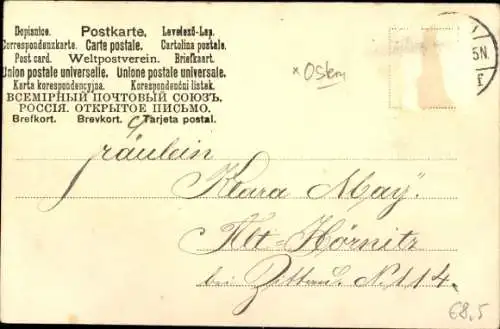 Dopisnice. Postkarte. Levelező-Lap.
Correspondenzkarte. Carte postale. Cartolina postale.
Post card. Weltpostverein. Briefkaart.
Union postale universelle. Unione postale universale.
Karta korespondencyjna. Korespondenční listek.
ВСЕМІРНЫЙ ПОЧТОВЫЙ СОЮЗЪ.
РОССІЯ. ОТКРЫТОЕ ПИСЬМО.
Brefkort. Brevkort. Tarjeta postal.
* Ostern
5N.
Fräulein
Klara May.
Alt-Hörnitz
bei Zittau. N. 114.
68,5